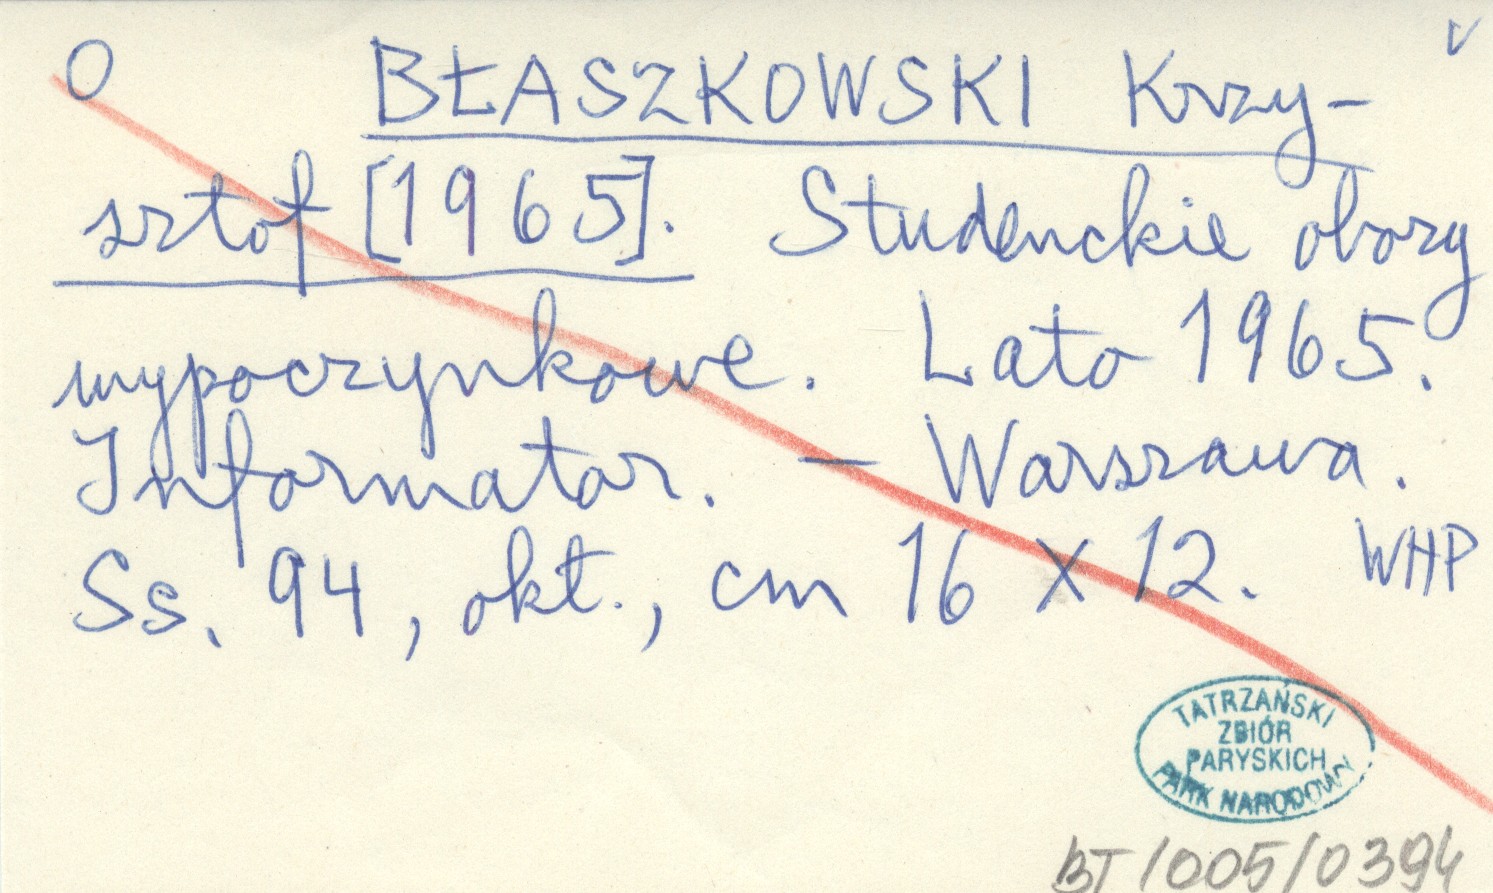 O BŁASZKOWSKI Krzy-
sztof [1965]. Studenckie obozy
wypoczynkowe. Lato 1965.
Informator. — Warszawa.
Ss. 94, okł., cm 16 X 12. WHP
TATRZAŃSKI
ZBIÓR
PARYSKICH
PARK NARODOWY
BT/005/0394